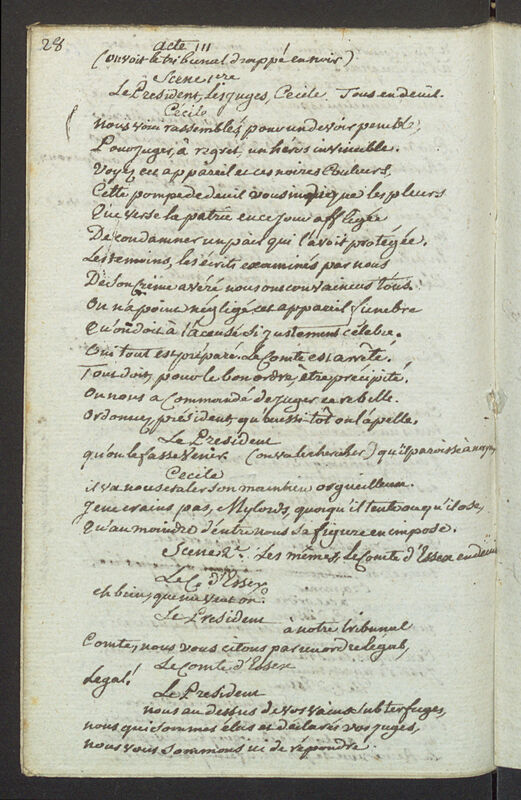 28
acte III
(on voit le tribunal drappé en noir)
Scene 1ere
Le President, les juges, Cecile. Tous en deuil.
Cecile
nous voici rassemblés pour un devoir penible,
Pour juger, à regret, un héros invincible.
Voyez cet appareil et ces noires Couleurs,
Cette pompe de deuil vous indique les pleurs
Que verse la patrie en ce jour affligée
De condamner un pair qui l'avoit protégée.
Les temoins, les écrits examinés par nous
De son Crime avéré nous ont convaincus tous.
On n'a point négligé cet appareil funebre
Qu'on doit à l'accusé si justement célebre.
Oui tout est préparé. Le Comte est arrêté.
Tout doit, pour le bon ordre, être précipité.
On nous a Commandé de juger ce rebelle.
Ordonnez, président, qu'aussi-tôt on l'apelle.
Le Président
qu'on le fasse venir. (on va le chercher) qu'il paroisse à
Cecile
il va nous étaler son maintien orgueilleux.
Je ne crains pas, Mylords, quoiqu'il tente ou qu'il ose,
Qu'au moindre d'entre nous sa figure en impose.
Scene 2e. Les mêmes, le Comte d'Essex en deuil
Le C. d'Essex
eh bien, que me veut on?
Le President
à notre tribunal
Comte, nous vous citons par un ordre legal,
Le Comte d'Essex
Legal!
Le President
nous au dessus de vos vains subterfuges,
nous qui sommes élus et déclarés vos juges,
nous vous sommons ici de répondre.